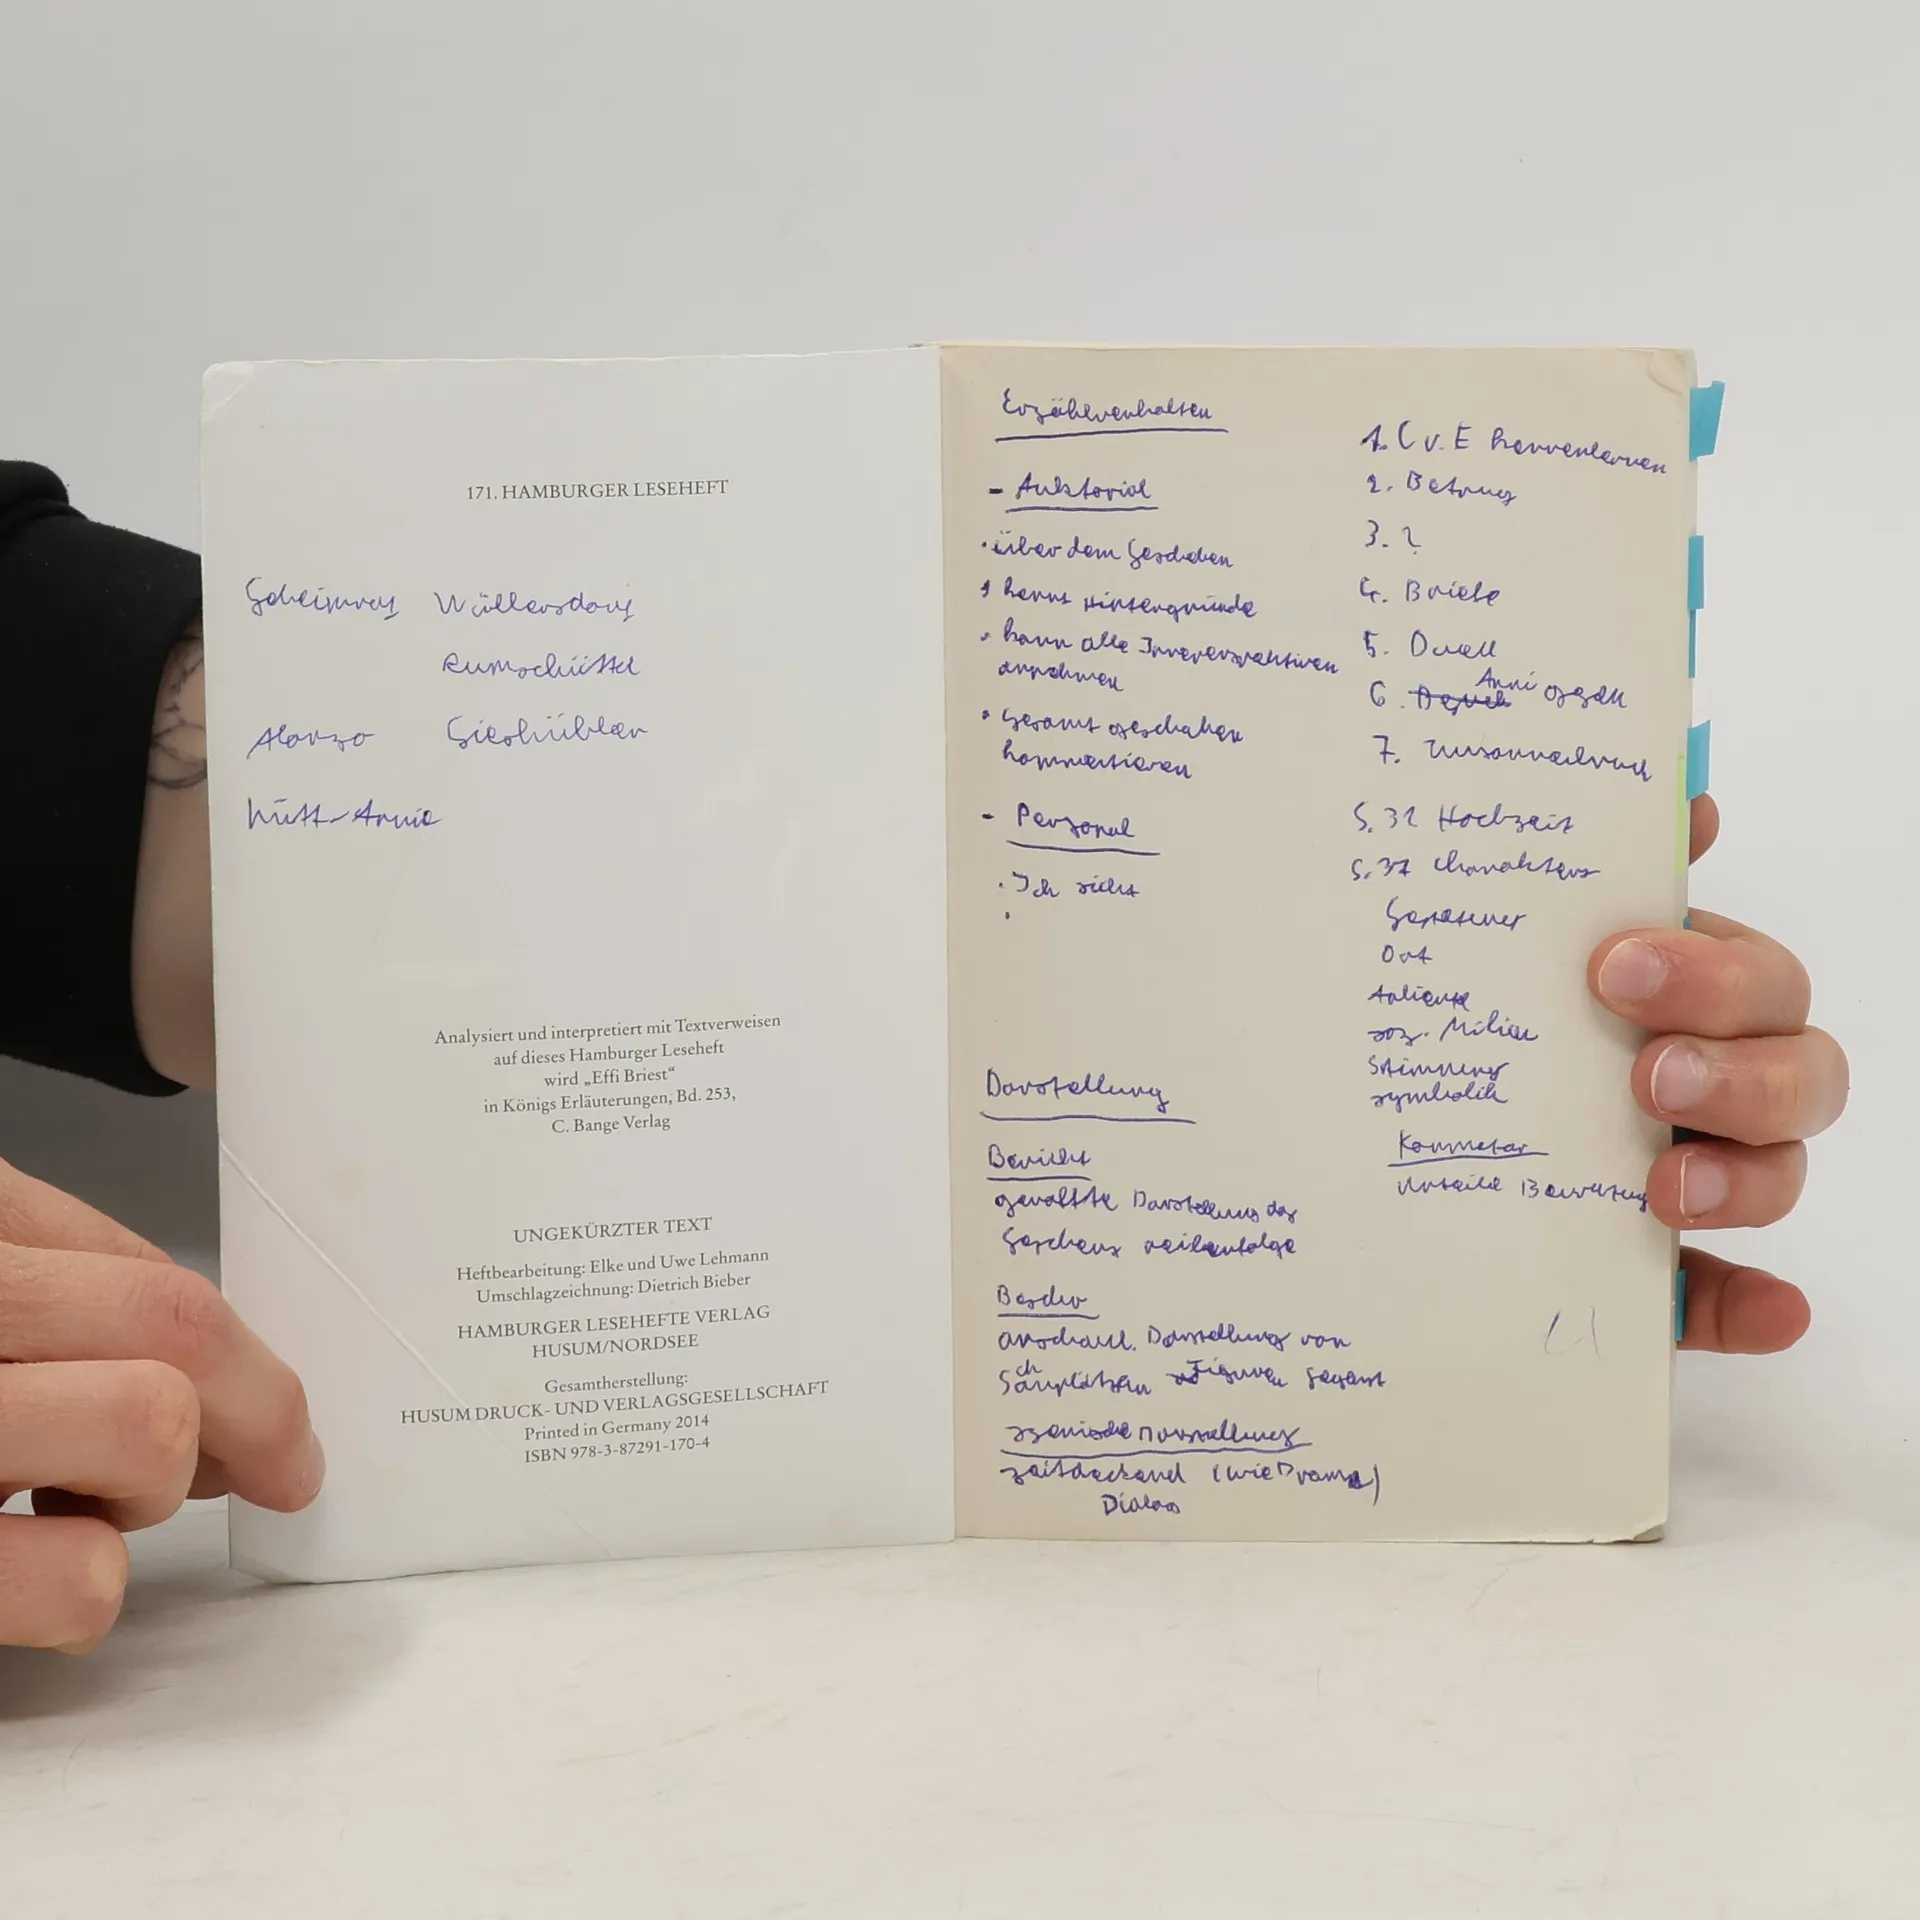 171. HAMBURGER LESEHEFT
Geheimrat Wüllersdorf
Rumschüttel
Alonzo Gieshübler
Lütt-Annie
Analysiert und interpretiert mit Textverweisen
auf dieses Hamburger Leseheft
wird „Effi Briest“
in Königs Erläuterungen, Bd. 253,
C. Bange Verlag
UNGEKÜRZTER TEXT
Heftbearbeitung: Elke und Uwe Lehmann
Umschlagzeichnung: Dietrich Bieber
HAMBURGER LESEHEFTE VERLAG
HUSUM/NORDSEE
Gesamtherstellung:
HUSUM DRUCK- UND VERLAGSGESELLSCHAFT
Printed in Germany 2014
ISBN 978-3-87291-170-4
Erzählverhalten
- Auktorial
• über dem Geschehen
• kennt Hintergründe
• kann alle
annehmen
• Gesamt geschehen
kommentieren
- Personal
• Ich sicht
•
Darstellung
Bericht
geraffte Darstellung des
Geschehens
Beschr
anschaul. Darstellung von
Schauplätzen Figuren
szenische Darstellung
zeitdeckend (wie Drama)
Dialog
1. C v. E kennenlernen
2. Betrug
3. ?
4. Briefe
5. Duell
6. Anni
7. Zusammenbruch
S. 31 Hochzeit
S. 37
Ort
soz. Milieu
Stimmung
Symbolik
Kommetar
Urteile Bewertung